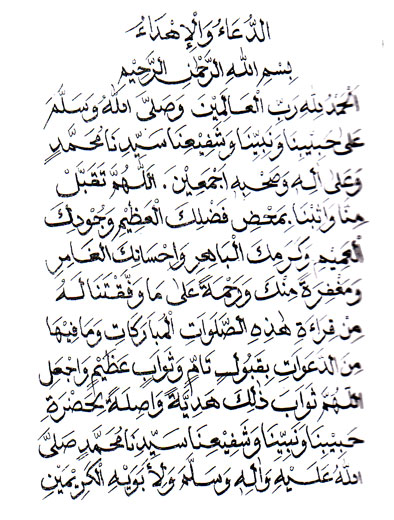 الدُّعَاءُ وَالْإِهْدَاءُ
بِسْمِ اللهِ الرَّحْمٰنِ الرَّحِيْمِ
اَلْحَمْدُ لِلّٰهِ رَبِّ الْعَالَمِيْنَ وَصَلَّى اللهُ وَسَلَّمَ
عَلٰى حَبِيْبِنَا وَنَبِيِّنَا وَشَفِيْعِنَا سَيِّدِنَا مُحَمَّدٍ
وَعَلٰى آلِهِ وَصَحْبِهِ اَجْمَعِيْنَ . اَللّٰهُمَّ تَقَبَّلْ
مِنَّا وَاثِبْنَا بِمَحْضِ فَضْلِكَ الْعَظِيْمِ وَجُوْدِكَ
الْعَمِيْمِ وَكَرَمِكَ الْبَاهِرِ وَاِحْسَانِكَ الْغَامِرِ
وَمَغْفِرَةً مِنْكَ وَرَحْمَةً عَلٰى مَا وَفَّقْتَنَا لَهُ
مِنْ قِرَاءَةِ هٰذِهِ الصَّلَوَاتِ الْمُبَارَكَاتِ وَمَا فِيْهَا
مِنَ الدَّعَوَاتِ بِقَبُوْلٍ تَامٍّ وَثَوَابٍ عَظِيْمٍ وَاجْعَلِ
اللّٰهُمَّ ثَوَابَ ذٰلِكَ هَدِيَّةً وَاصِلَةً لِحَضْرَةِ
حَبِيْبِنَا وَنَبِيِّنَا وَشَفِيْعِنَا سَيِّدِنَا مُحَمَّدٍ صَلَّى
اللهُ عَلَيْهِ وَآلِهِ وَسَلَّمَ وَلِأَبَوَيْهِ الْكَرِيْمَيْنِ